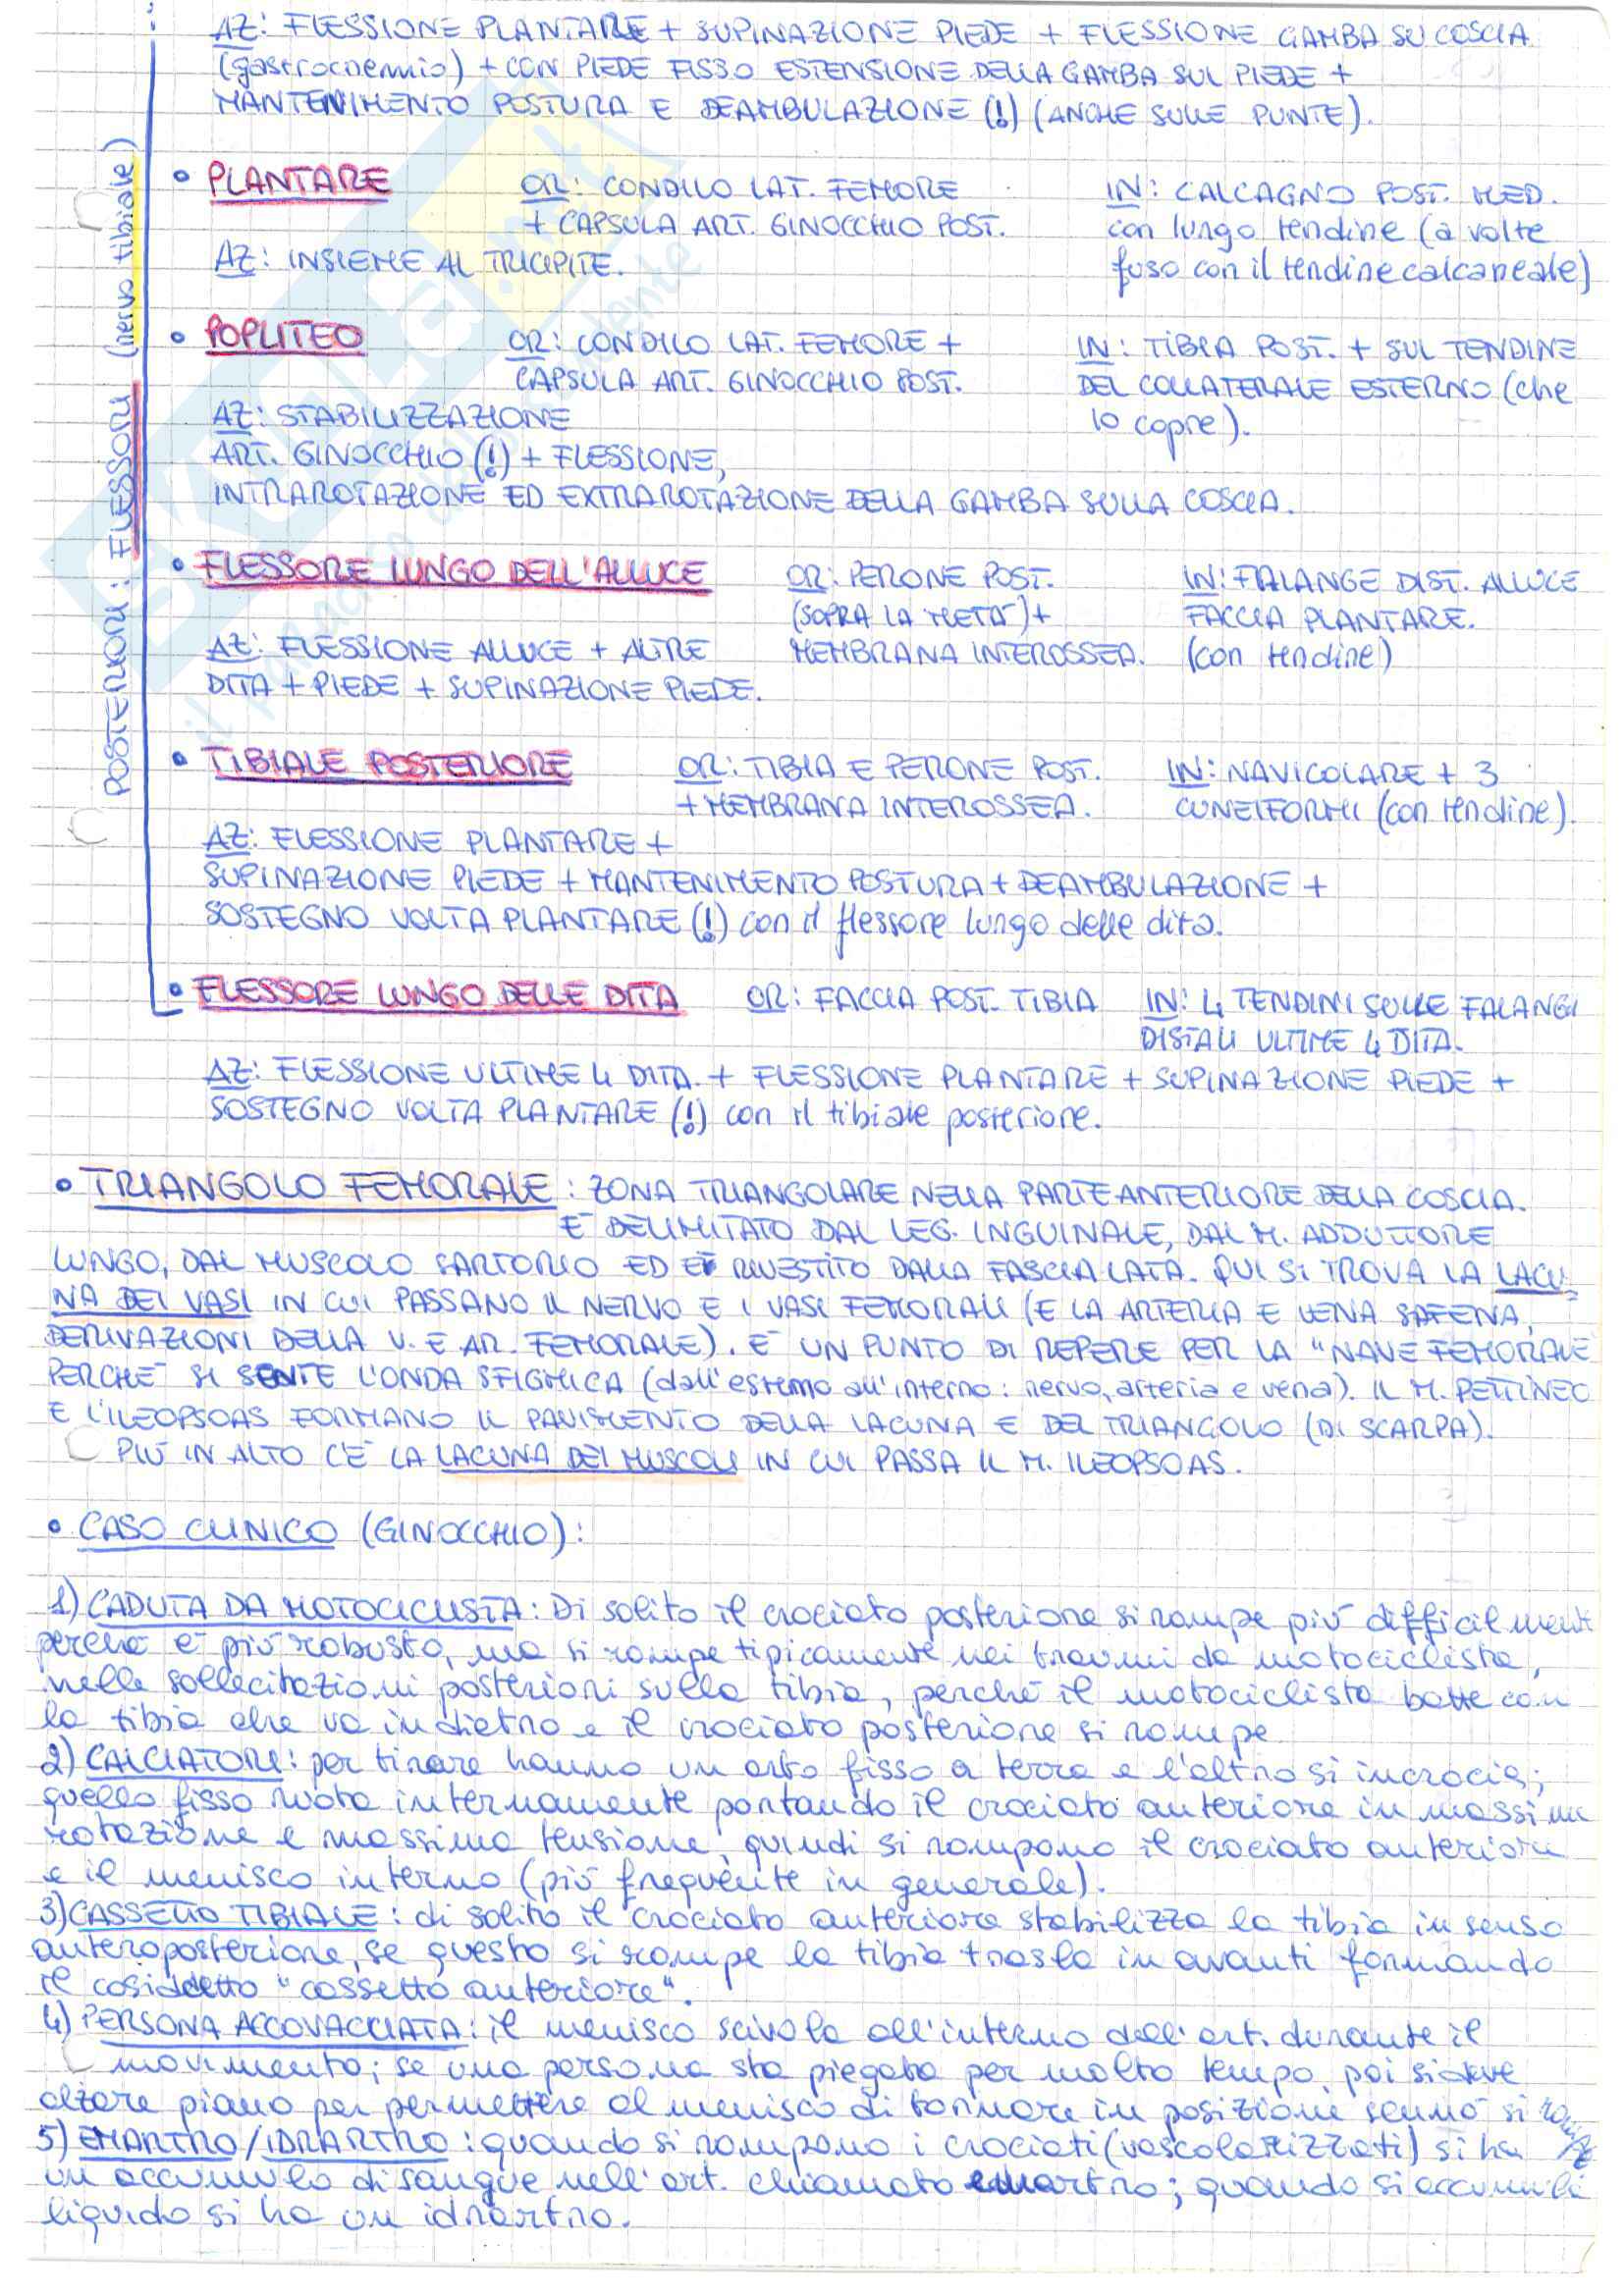 AZ: FLESSIONE PLANTARE + SUPINAZIONE PIEDE + FLESSIONE GAMBA SU COSCIA
(gastrocnemio) + CON PIEDE FISSO ESTENSIONE DELLA GAMBA SUL PIEDE +
MANTENIMENTO POSTURA E DEAMBULAZIONE (!) (ANCHE SULLE PUNTE).
POSTERIORI: FLESSORI (nervo tibiale)
• PLANTARE OR: CONDILO LAT. FEMORE IN: CALCAGNO POST. MED.
+ CAPSULA ART. GINOCCHIO POST. con lungo tendine (a volte
AZ: INSIEME AL TRICIPITE. fuso con il tendine calcaneale)
• POPLITEO OR: CONDILO LAT. FEMORE + IN: TIBIA POST. + SUL TENDINE
CAPSULA ART. GINOCCHIO POST. DEL COLLATERALE ESTERNO (che
AZ: STABILIZZAZIONE lo copre).
ART. GINOCCHIO (!) + FLESSIONE,
INTRAROTAZIONE ED EXTRAROTAZIONE DELLA GAMBA SULLA COSCIA.
• FLESSORE LUNGO DELL'ALLUCE OR: PERONE POST. IN: FALANGE DIST. ALLUCE
(SOPRA LA METÀ) + FACCIA PLANTARE.
AZ: FLESSIONE ALLUCE + ALTRE MEMBRANA INTEROSSEA. (con tendine)
DITA + PIEDE + SUPINAZIONE PIEDE.
• TIBIALE POSTERIORE OR: TIBIA E PERONE POST. IN: NAVICOLARE + 3
+ MEMBRANA INTEROSSEA. CUNEIFORMI (con tendine).
AZ: FLESSIONE PLANTARE +
SUPINAZIONE PIEDE + MANTENIMENTO POSTURA + DEAMBULAZIONE +
SOSTEGNO VOLTA PLANTARE (!) con il flessore lungo delle dita.
• FLESSORE LUNGO DELLE DITA OR: FACCIA POST. TIBIA IN: 4 TENDINI SULLE FALANGI
DISTALI ULTIME 4 DITA.
AZ: FLESSIONE ULTIME 4 DITA + FLESSIONE PLANTARE + SUPINAZIONE PIEDE +
SOSTEGNO VOLTA PLANTARE (!) con il tibiale posteriore.
• TRIANGOLO FEMORALE: ZONA TRIANGOLARE NELLA PARTE ANTERIORE DELLA COSCIA.
E' DELIMITATO DAL LEG. INGUINALE, DAL M. ADDUTTORE
LUNGO, DAL MUSCOLO SARTORIO ED E' RIVESTITO DALLA FASCIA LATA. QUI SI TROVA LA LACU-
NA DEI VASI IN CUI PASSANO IL NERVO E I VASI FEMORALI (E LA ARTERIA E VENA SAFENA,
DERIVAZIONI DELLA V. E AR. FEMORALE). E' UN PUNTO DI REPERE PER LA "NAVE FEMORALE
PERCHE' SI SENTE L'ONDA SFIGMICA (dall'esterno all'interno: nervo, arteria e vena). IL M. PETTINEO
E L'ILEOPSOAS FORMANO IL PAVIMENTO DELLA LACUNA E DEL TRIANGOLO (DI SCARPA).
PIÙ IN ALTO C'E' LA LACUNA DEI MUSCOLI IN CUI PASSA IL M. ILEOPSOAS.
• CASO CLINICO (GINOCCHIO):
1) CADUTA DA MOTOCICLISTA: Di solito il crociato posteriore si rompe più difficilment
perché è più robusto, ma si rompe tipicamente nei traumi da motociclista,
nelle sollecitazioni posteriori sulla tibia, perché il motociclista batte con
la tibia che va indietro e il crociato posteriore si rompe
2) CALCIATORI: per tirare hanno un arto fisso a terra e l'altro si incrocia;
quello fisso ruota internamente portando il crociato anteriore in massima
rotazione e massima tensione, quindi si rompono il crociato anteriore
e il menisco interno (più frequente in generale).
3) CASSETTO TIBIALE: di solito il crociato anteriore stabilizza la tibia in senso
anteroposteriore, se questo si rompe la tibia trasla in avanti formando
il cosiddetto "cassetto anteriore".
4) PERSONA ACCOVACCIATA: il menisco scivola all'interno dell'art. durante il
movimento; se una persona sta piegata per molto tempo, poi si deve
alzare piano per permettere al menisco di tornare in posizione sennò si rompe
5) EMARTRO/IDRARTRO: quando si rompono i crociati (vascolarizzati) si ha
un accumulo di sangue nell'art. chiamato emartro; quando si accumula
liquido si ha un idrartro.